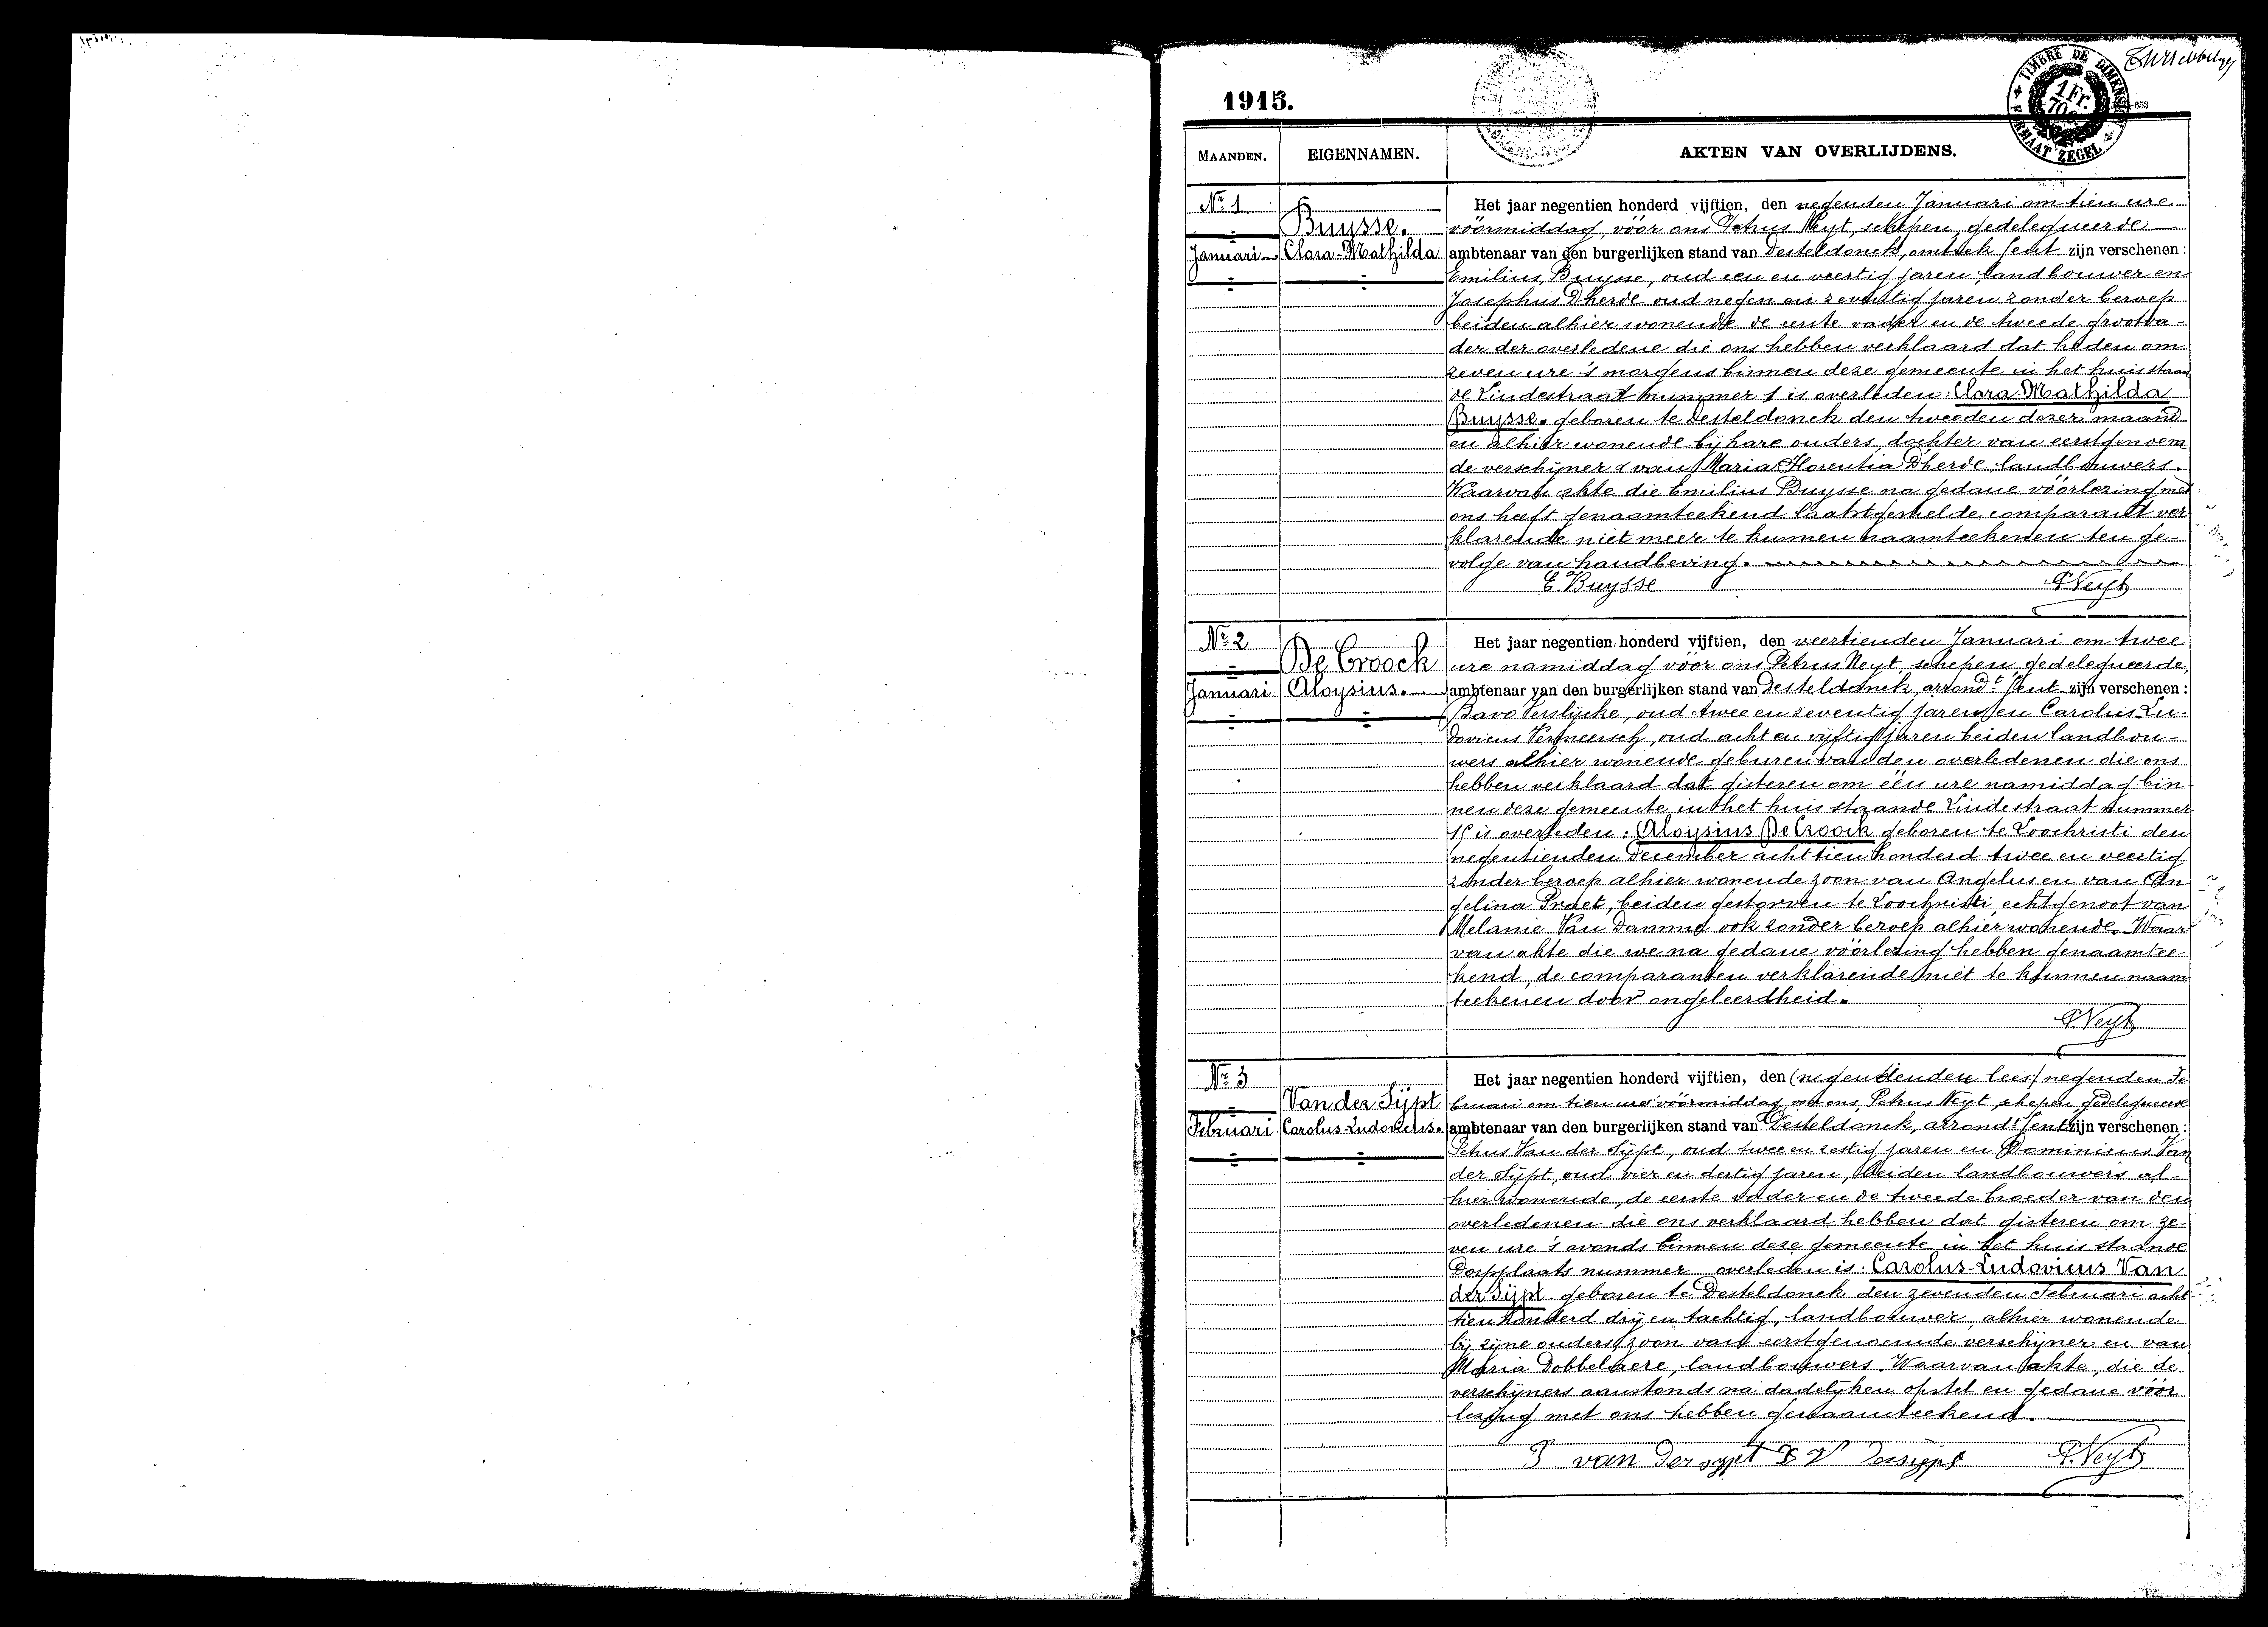 1915.
TIMBRE DE DIMENSION
1 Fr.
FORMAAT ZEGEL
653
MAANDEN.
EIGENNAMEN.
AKTEN VAN OVERLIJDENS.
Nr. 1
Januari
Buysse.
Clara-Mathilda
Het jaar negentien honderd vijftien, den negenden Januari om tien ure
vóórmiddag, vóór ons Petrus Neyt, schepen, gedelegueerde
ambtenaar van den burgerlijken stand van Desteldonck, Gent zijn verschenen:
Emilius Buysse, oud een en veertig jaren, landbouwer en
Josephus D'herde oud negen en zeventig jaren zonder beroep
beiden alhier wonende de eerste vader en de tweede grootva-
der der overledene die ons hebben verklaard dat heden om
zeven ure 's morgens binnen deze gemeente in het huis staan
de Lindestraat nummer 1 is overleden: Clara-Mathilda
Buysse. geboren te Desteldonck den tweeden dezer maand
en alhier wonende bij hare ouders, dochter van eerstgenoem
de verschijner & van Maria Florentia D'herde, landbouwers.
Waarvan akte die Emilius Buysse na gedane vóórlezing met
ons heeft genaamteekend laatstgemelde comparant ver
klarende niet meer te kunnen naamteekenen ten ge-
volge van handbeving.
E Buysse
P. Neyt
Nr. 2
Januari
De Croock
Aloysius.
Het jaar negentien honderd vijftien, den veertienden Januari om twee
ure namiddag vóór ons Petrus Neyt, schepen, gedelegueerde,
ambtenaar van den burgerlijken stand van Desteldonck, arrondt Gent zijn verschenen:
Bavo Verslijcke, oud twee en zeventig jaren en Carolus Lu-
dovicus Vermeersch, oud acht en vijftig jaren beiden landbou-
wers alhier wonende geburen van den overledenen die ons
hebben verklaard dat gisteren om één ure namiddag bin-
nen deze gemeente in het huis staande Lindestraat nummer
is overleden: Aloysius De Croock geboren te Loochristi den
negentienden December achttien honderd twee en veertig
zonder beroep alhier wonende zoon van Angelus en van An-
gelina Praet, beiden gestorven te Loochristi, echtgenoot van
Melanie Van Damme ook zonder beroep alhier wonende. Waar
van akte die we na gedane vóórlezing hebben genaamtee-
kend, de comparanten verklarende niet te kunnen naam
teekenen door ongeleerdheid.
P. Neyt
Nr. 3
Februari
Van der Sijpt
Carolus-Ludovicus.
Het jaar negentien honderd vijftien, den (negentienden lees) negenden Fe
bruari om tien ure vóórmiddag vóór ons, Petrus Neyt, schepen, gedelegueerde
ambtenaar van den burgerlijken stand van Desteldonck, arrondt Gent zijn verschenen:
Petrus Van der Sijpt, oud twee en zestig jaren en Dominicus Van
der Sijpt, oud vier en dertig jaren, beiden landbouwers al-
hier wonende, de eerste vader en de tweede broeder van den
overledenen die ons verklaard hebben dat gisteren om ze-
ven ure 's avonds binnen deze gemeente in het huis staande
Dorpplaats nummer overleden is: Carolus-Ludovicus Van
der Sijpt. geboren te Desteldonck den zevenden Februari acht
tien honderd drij en tachtig, landbouwer, alhier wonende
bij zijne ouders, zoon van eerstgenoemde verschijner en van
Maria Dobbelaere, landbouwers. Waarvan akte, die de
verschijners aanstonds na dadelijken opstel en gedane vóór
lezing met ons hebben genaamteekend.
P van der sypt D V dersijpt
P. Neyt